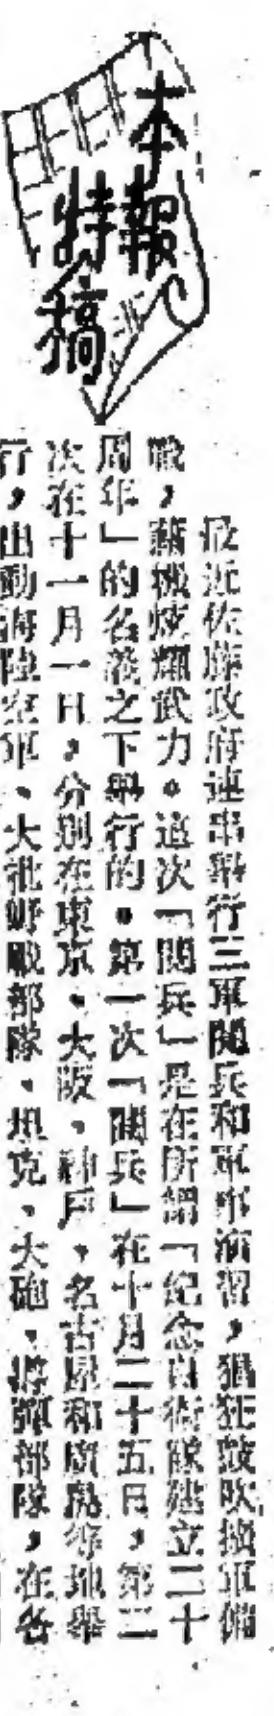 本報
特稿
最近佐藤政府連串舉行三軍閱兵和軍事演習,猖狂鼓吹擴軍備
戰,藉機炫耀武力。這次「閱兵」是在所謂「紀念自衛隊建立二十
周年」的名義之下舉行的。第一次「閱兵」在十月二十五日,第二
次在十一月一日,分別在東京、大阪、神戶、名古屋和廣島等地舉
行,出動海陸空軍、大批野戰部隊、坦克、大砲、導彈部隊,在各